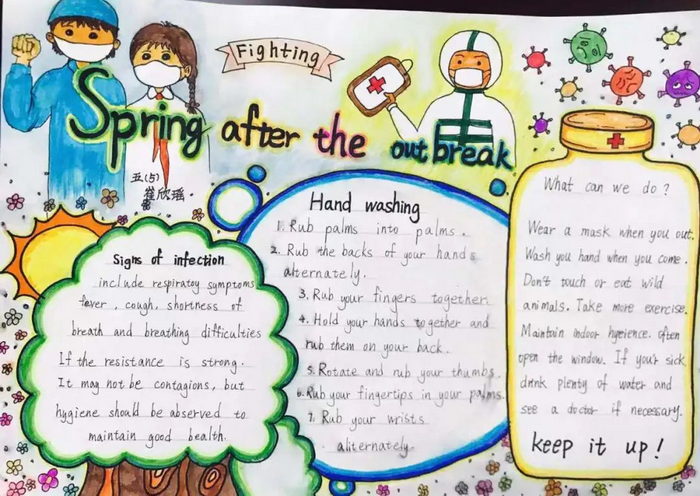 Fighting
Spring after the outbreak
五(5)
崔欣瑶
Signs of infection
include respiratoy symptoms
fever, cough, shortness of
breath and breathing difficulties
If the resistance is strong.
It may not be contagions, but
hygiene should be observed to
maintain good health.
Hand washing
1. Rub palms into palms.
2. Rub the backs of your hands
alternately.
3. Rub your fingers together.
4. Hold your hands together and
rub them on your back.
5. Rotate and rub your thumbs.
6. Rub your fingertips in your palms.
7. Rub your wrists
aliternately.
What can we do?
Wear a mask when you out.
Wash you hand when you come.
Don't touch or eat wild
animals. Take more exercise.
Maintain indoor hyeience. Often
open the window. If you'r sick,
drink plenty of water and
see a doctor if necessary.
keep it up!